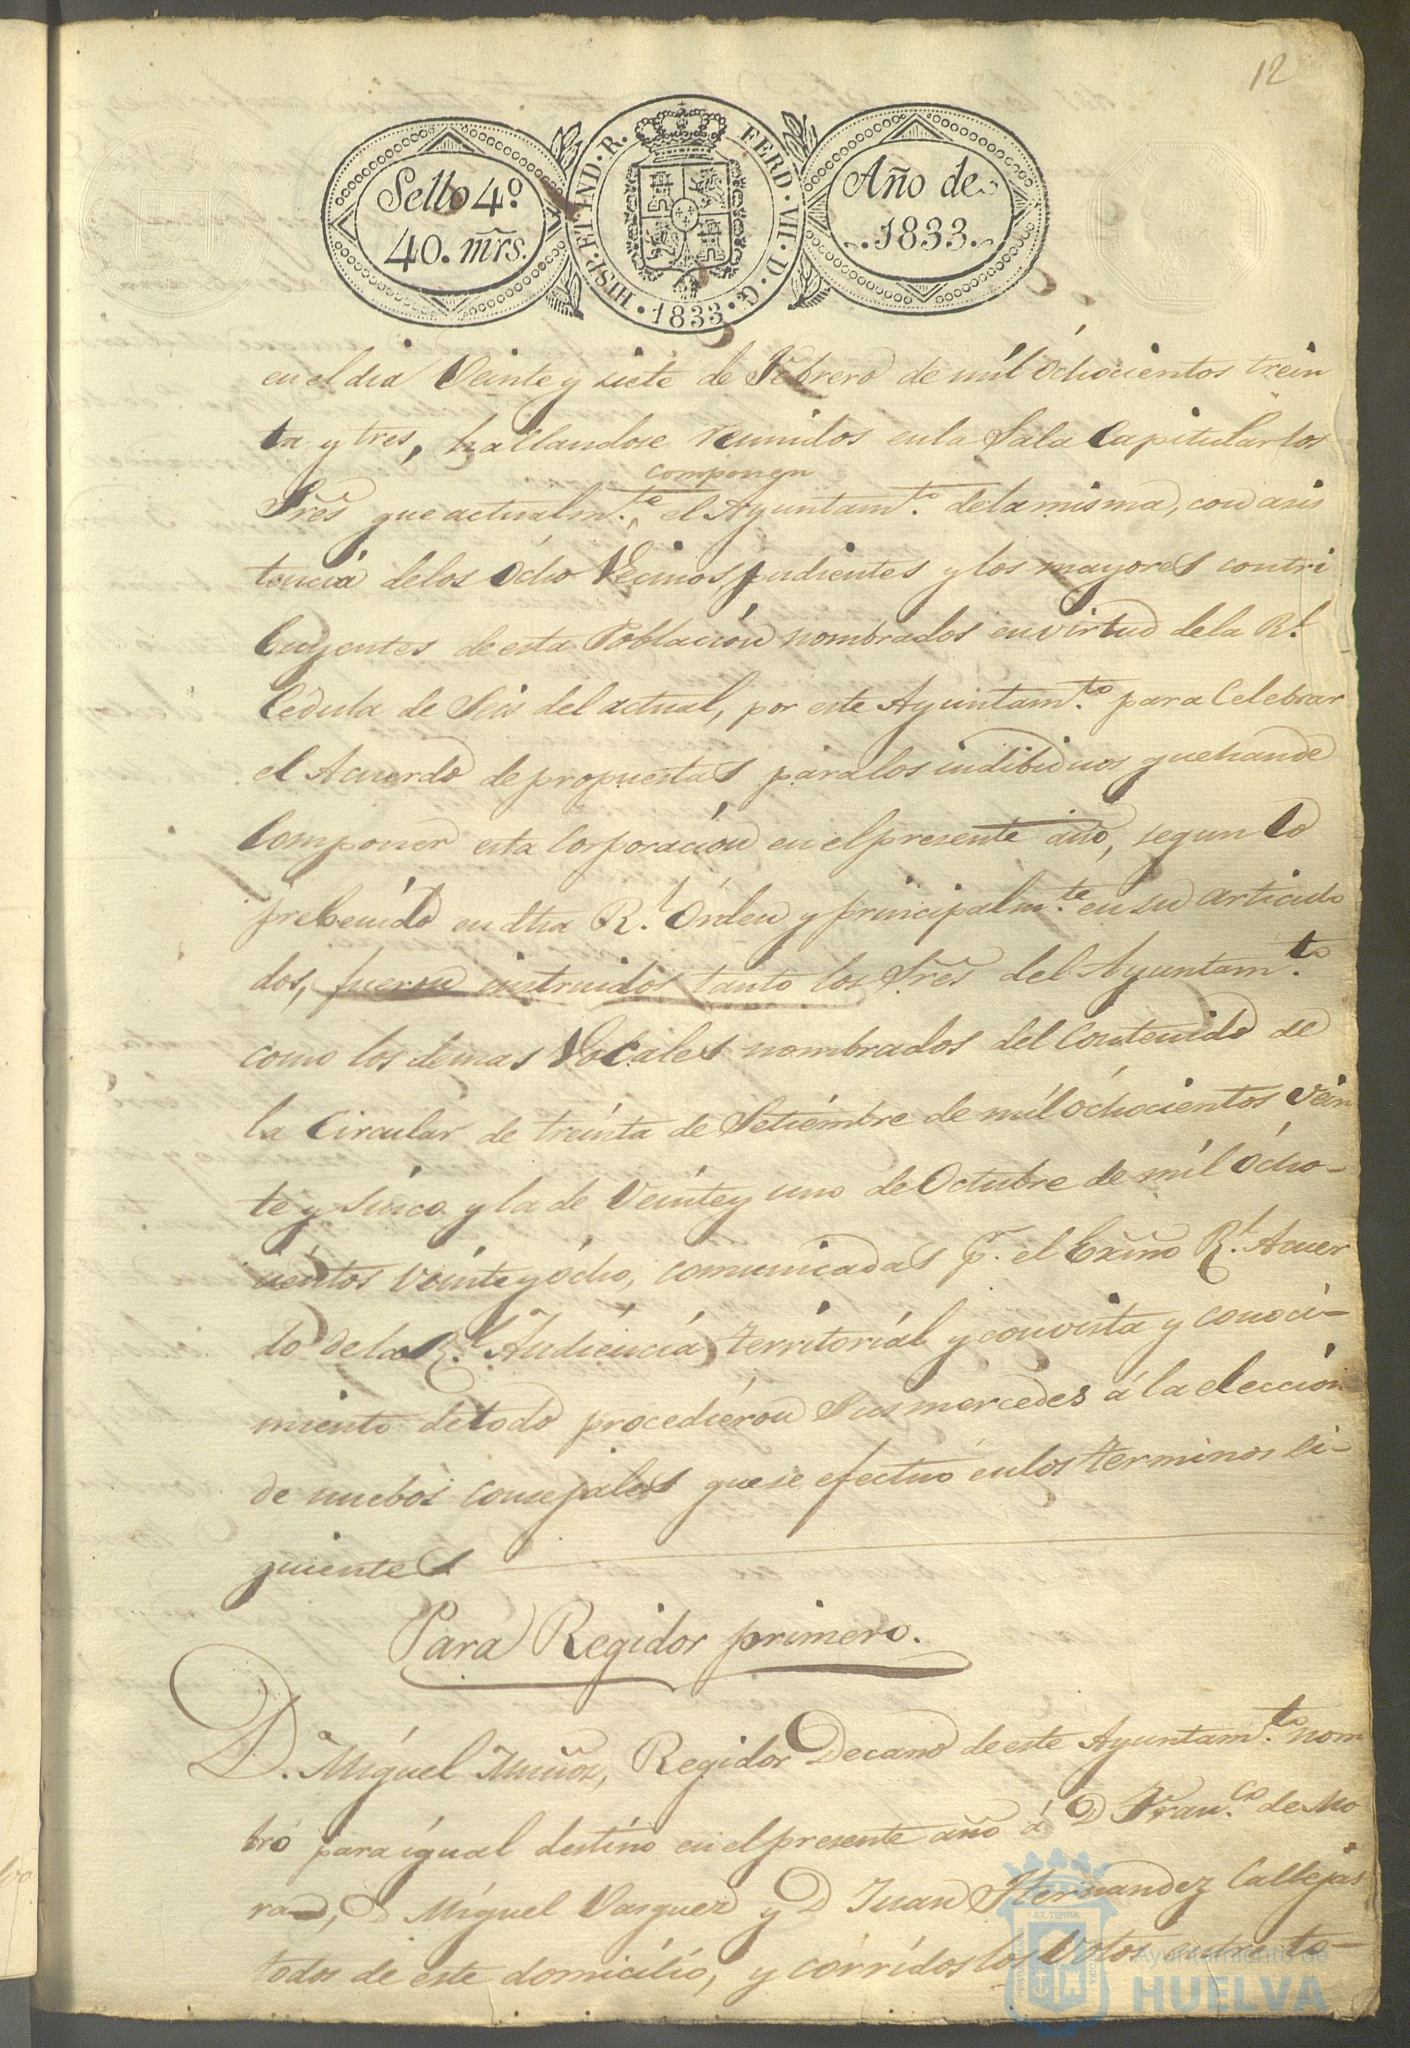 12
Sello 4º
40. mrs.
HISP. ET. IND. R. FERD. VII. D. G. 1833.
Año de
1833.
en el dia Veinte y siete de Febrero de mil ochocientos trein
ta y tres, hallandose reunidos en la Sala Capitular los
componen
Sres que actualm.te el Ayuntam.to de la misma, con asis
tencia de los Ocho Vecinos pudientes y los mayores contri
buyentes de esta Poblacion nombrados en virtud de la R.l
Cedula de Seis del actual, por este Ayuntam.to para Celebrar
el Acuerdo de propuestas para los indibiduos que hande
Componer esta Corporacion en el presente año, segun lo
prebenido en dha R.l Orden y principalm.te en su articulo
dos, fueron instruidos tanto los Sres del Ayuntam.to
como los demas Vocales nombrados del Contenido de
la Circular de treinta de Setiembre de mil ochocientos vein
te y Sinco y la de Veinte y uno de Octubre de mil ócho-
cientos veinte y ócho, comunicadas p.r el Exmo R.l Acuer
do de la R.l Audiencia territorial y con vista y conoci-
miento de todo procedieron Sus mercedes á la eleccion
de nuebos consejales que se efectuó en los terminos si-
guientes
Para Regidor primero.
D. Miguel Muñoz, Regidor Decano de este Ayuntam.to nom
bró para igual destino en el presente año á D Fran.co de Mo
ra, D Miguel Vasquez y D Juan Hernandez Callejas
todos de este domicilio, y corridos los Votos entre to-
Ayuntamiento de
HUELVA